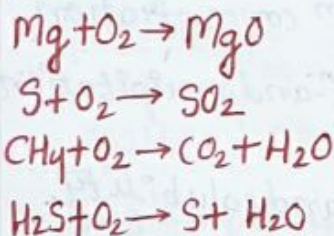 Mg+O₂→MgO
S+O₂→SO₂
CH4+O₂→CO₂+H₂O
H₂S+O₂→S+H₂O